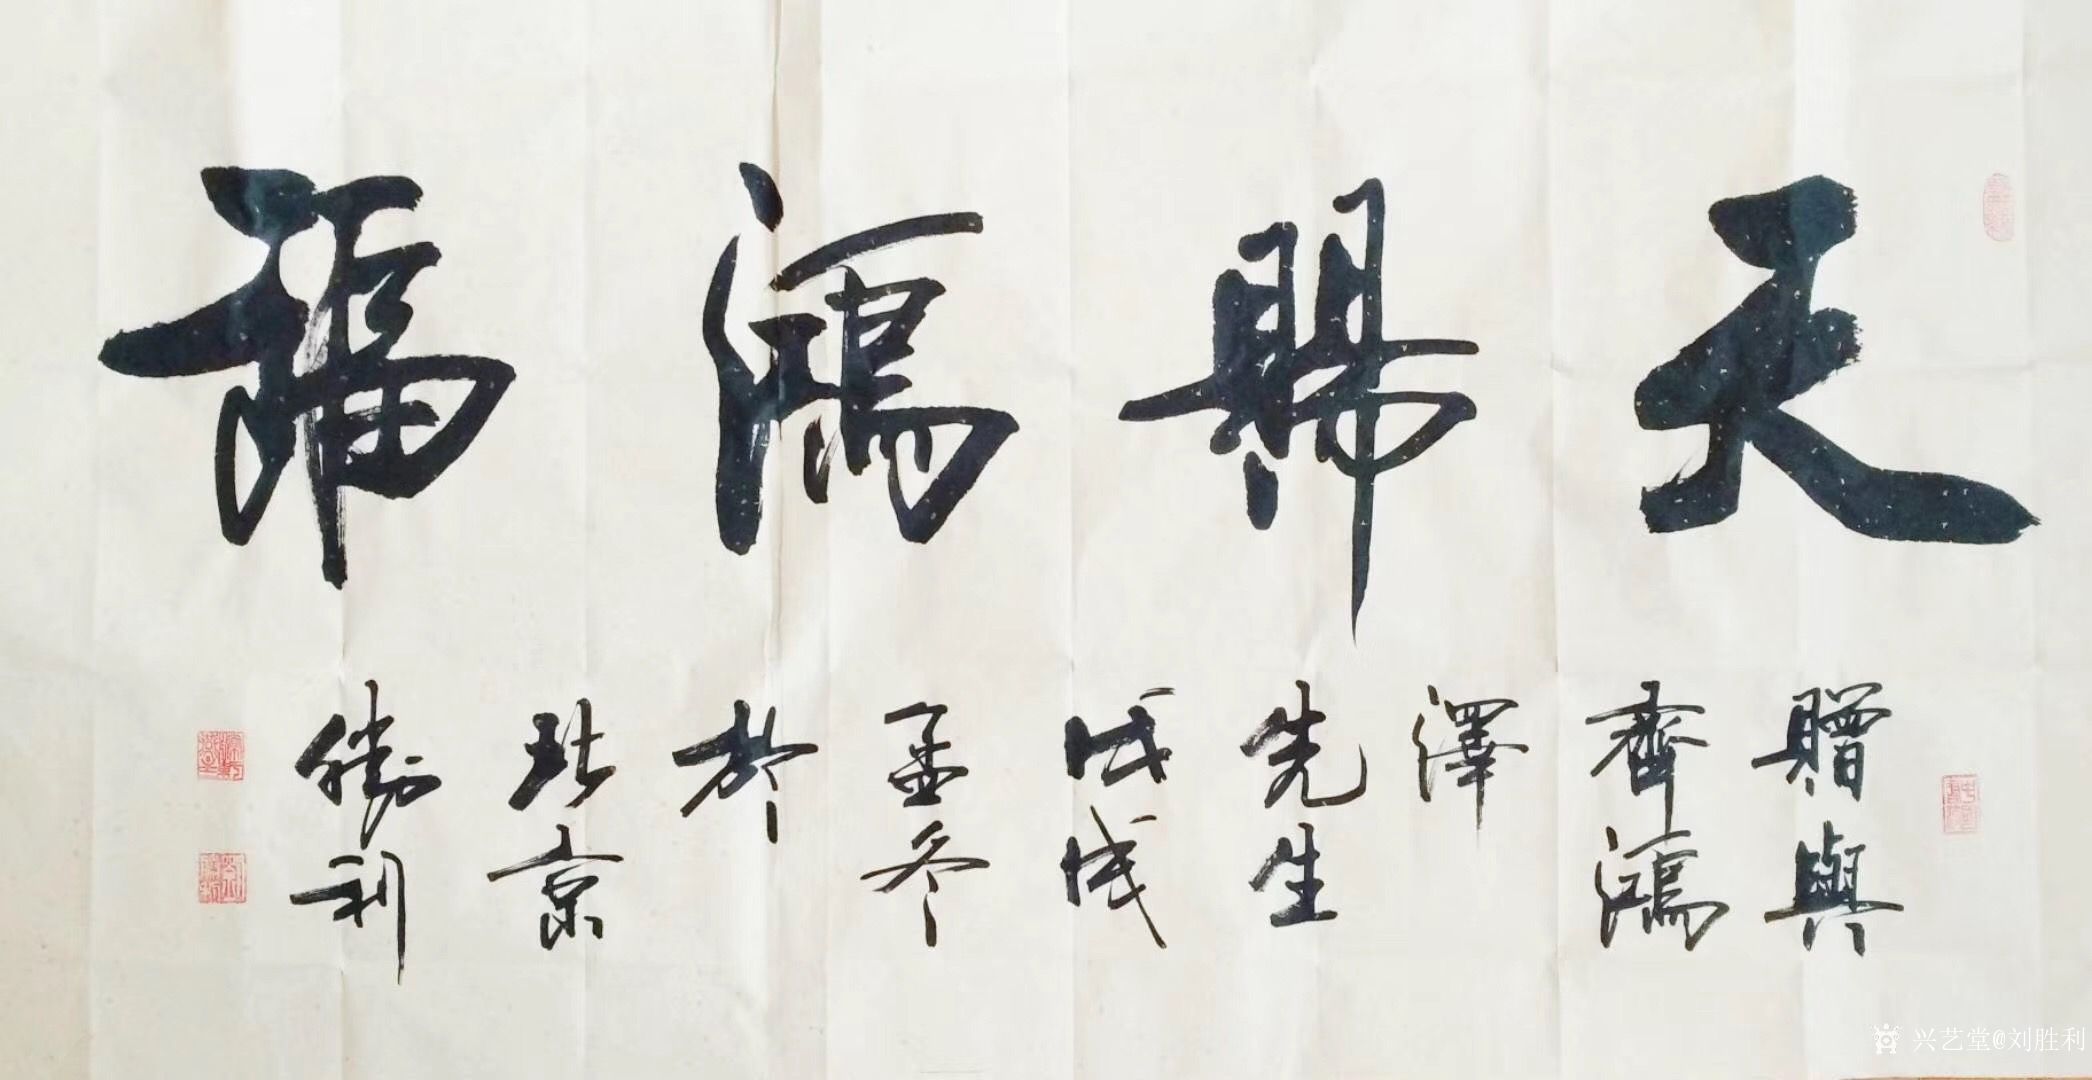 天賜鴻福
贈與
齊鴻
澤
先生
戊戌
孟冬
於
北京
勝利
兴艺堂@刘胜利